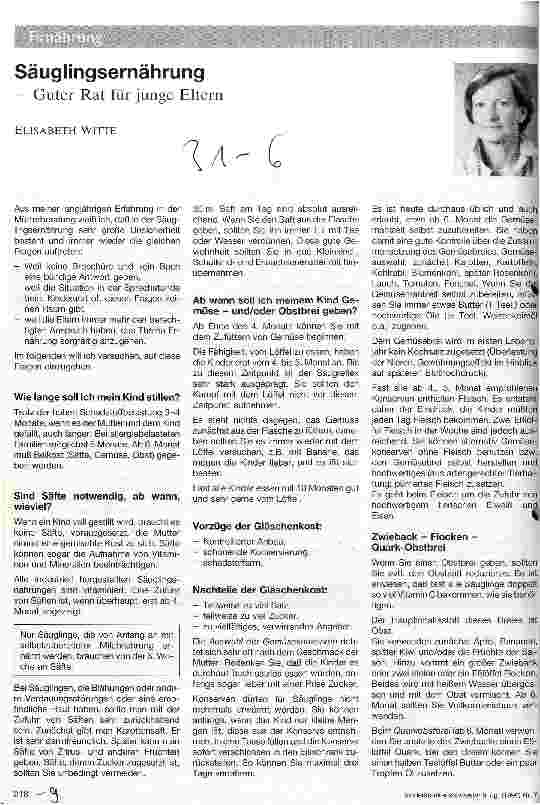 Ernährung
Säuglingsernährung
– Guter Rat für junge Eltern
ELISABETH WITTE
31-6
Aus meiner langjährigen Erfahrung in der
Mütterberatung weiß ich, daß in der Säug-
lingsernährung sehr große Unsicherheit
besteht und immer wieder die gleichen
Fragen auftreten:
– Weil keine Broschüre und kein Buch
eine bündige Antwort geben,
– weil die Situation in der Sprechstunde
beim Kinderarzt oft diesen Fragen kei-
nen Raum gibt,
– weil die Eltern immer mehr den berech-
tigten Anspruch haben, das Thema Er-
nährung sorgfältig anzugehen.
Im folgenden will ich versuchen, auf diese
Fragen einzugehen.
Wie lange soll ich mein Kind stillen?
Trotz der hohen Schadstoffbelastung 3–4
Monate, wenn es der Mutter und dem Kind
gefällt, auch länger. Bei allergiebelasteten
Familien möglichst 6 Monate. Ab 6. Monat
muß Beikost (Säfte, Gemüse, Obst) gege-
ben werden.
Sind Säfte notwendig, ab wann,
wieviel?
Wenn ein Kind voll gestillt wird, braucht es
keine Säfte, vorausgesetzt, die Mutter
nimmt eine gemischte Kost zu sich. Säfte
können sogar die Aufnahme von Vitami-
nen und Mineralien beeinträchtigen.
Alle industriell hergestellten Säuglings-
nahrungen sind vitaminiert. Eine Zufuhr
von Säften ist, wenn überhaupt, erst ab 4.
Monat angezeigt.
Nur Säuglinge, die von Anfang an mit
selbstzubereiteter Milchnahrung er-
nährt werden, brauchen von der 6. Wo-
che an Säfte.
Bei Säuglingen, die Blähungen oder ande-
re Verdauungsstörungen oder eine emp-
findliche Haut haben, sollte man mit der
Zufuhr von Säften sehr zurückhaltend
sein. Zunächst gibt man Karottensaft. Er
ist sehr darmfreundlich. Später kann man
Säfte von Zitrus- und anderen Früchten
geben. Säfte, denen Zucker zugesetzt ist,
sollten Sie unbedingt vermeiden.
218 -9
30 ml Saft am Tag sind absolut ausrei-
chend. Wenn Sie den Saft aus der Flasche
geben, sollten Sie ihn immer 1:1 mit Tee
oder Wasser verdünnen. Diese gute Ge-
wohnheit sollten Sie in das Kleinkind-,
Schulkind- und Erwachsenenalter mit hin-
übernehmen.
Ab wann soll ich meinem Kind Ge-
müse – und/oder Obstbrei geben?
Ab Ende des 4. Monats können Sie mit
dem Zufüttern von Gemüse beginnen.
Die Fähigkeit, vom Löffel zu essen, haben
die Kinder erst vom 4. bis 5. Monat an. Bis
zu diesem Zeitpunkt ist der Saugreflex
sehr stark ausgeprägt. Sie sollten den
Kampf mit dem Löffel nicht vor diesem
Zeitpunkt aufnehmen.
Es steht nichts dagegen, das Gemüse
zunächst aus der Flasche zu füttern, dane-
ben sollten Sie es immer wieder mit dem
Löffel versuchen, z.B. mit Banane, das
mögen die Kinder lieber, und es ißt sich
besten.
Fast alle Kinder essen mit 10 Monaten gut
und sehr gerne vom Löffel.
Vorzüge der Gläschenkost:
– Kontrollierter Anbau,
– schonende Konservierung,
– schadstoffarm.
Nachteile der Gläschenkost:
– Teilweise zu viel Salz,
– teilweise zu viel Zucker,
– zu vielfältiges, verwirrendes Angebot.
Die Auswahl der Gemüsekonserven rich-
tet sich sehr oft nach dem Geschmack der
Mutter. Bedenken Sie, daß die Kinder es
durchaus noch salzlos essen würden, an-
fangs sogar lieber mit einer Prise Zucker.
Konserven dürfen für Säuglinge nicht
mehrmals erwärmt werden. Sie können
anfangs, wenn das Kind nur kleine Men-
gen ißt, diese aus der Konserve entneh-
men, in eine Tasse füllen und die Konserve
sofort verschlossen in den Eisschrank zu-
rückstellen. So können Sie maximal drei
Tage verfahren.
Es ist heute durchaus üblich und auch
erlaubt, schon ab 6. Monat die Gemüse-
mahlzeit selbst zuzubereiten. Sie haben
damit eine gute Kontrolle über die Zusam-
mensetzung des Gemüsebreies. Gemüse-
auswahl zunächst: Karotten, Kartoffeln,
Kohlrabi, Blumenkohl, später Rosenkohl,
Lauch, Tomaten, Fenchel. Wenn Sie die
Gemüsemahlzeit selbst zubereiten, müs-
sen Sie immer etwas Butter (1 Teel.) oder
hochwertiges Öl (1 Teel. Weizenkeimöl
o.ä.) zugeben.
Dem Gemüsebrei wird im ersten Lebens-
jahr kein Kochsalz zugesetzt (Überlastung
der Nieren, Gewöhnungseffekt im Hinblick
auf späteren Bluthochdruck).
Fast alle ab 4., 5. Monat empfohlenen
Konserven enthalten Fleisch. Es entsteht
daher der Eindruck, die Kinder müßten
jeden Tag Fleisch bekommen. Zwei Eßlöf-
fel Fleisch in der Woche sind jedoch aus-
reichend. Sie können alternativ Gemüse-
konserven ohne Fleisch benutzen bzw.
den Gemüsebrei selbst herstellen und
hochwertiges Fleisch aus artgerechter Tierhal-
tung püriertes Fleisch zusetzen.
Es geht beim Fleisch um die Zufuhr von
hochwertigem tierischen Eiweiß und
Eisen.
Zwieback – Flocken –
Quark-Obstbrei
Wenn Sie einen Obstbrei geben, sollten
Sie evtl. den Obstsaft reduzieren. Es ist
erwiesen, daß fast alle Säuglinge doppelt
so viel Vitamin C bekommen, wie sie benö-
tigen.
Der Hauptinhaltsstoff dieses Breies ist
Obst.
Sie verwenden zunächst Apfel, Bananen,
später Kiwi und/oder die Früchte der Sai-
son. Hinzu kommt ein großer Zwieback
oder zwei kleine oder ein Eßlöffel Flocken.
Beides wird mit heißem Wasser übergos-
sen und mit dem Obst vermischt. Ab 6.
Monat sollten Sie Vollkornflocken ver-
wenden.
Beim Quarkobstbrei (ab 6. Monat) verwen-
den Sie anstelle des Zwiebacks einen Eß-
löffel Quark. Bei den Breien sollten Sie
einen halben Teelöffel Butter oder ein paar
Tropfen Öl zusetzen.